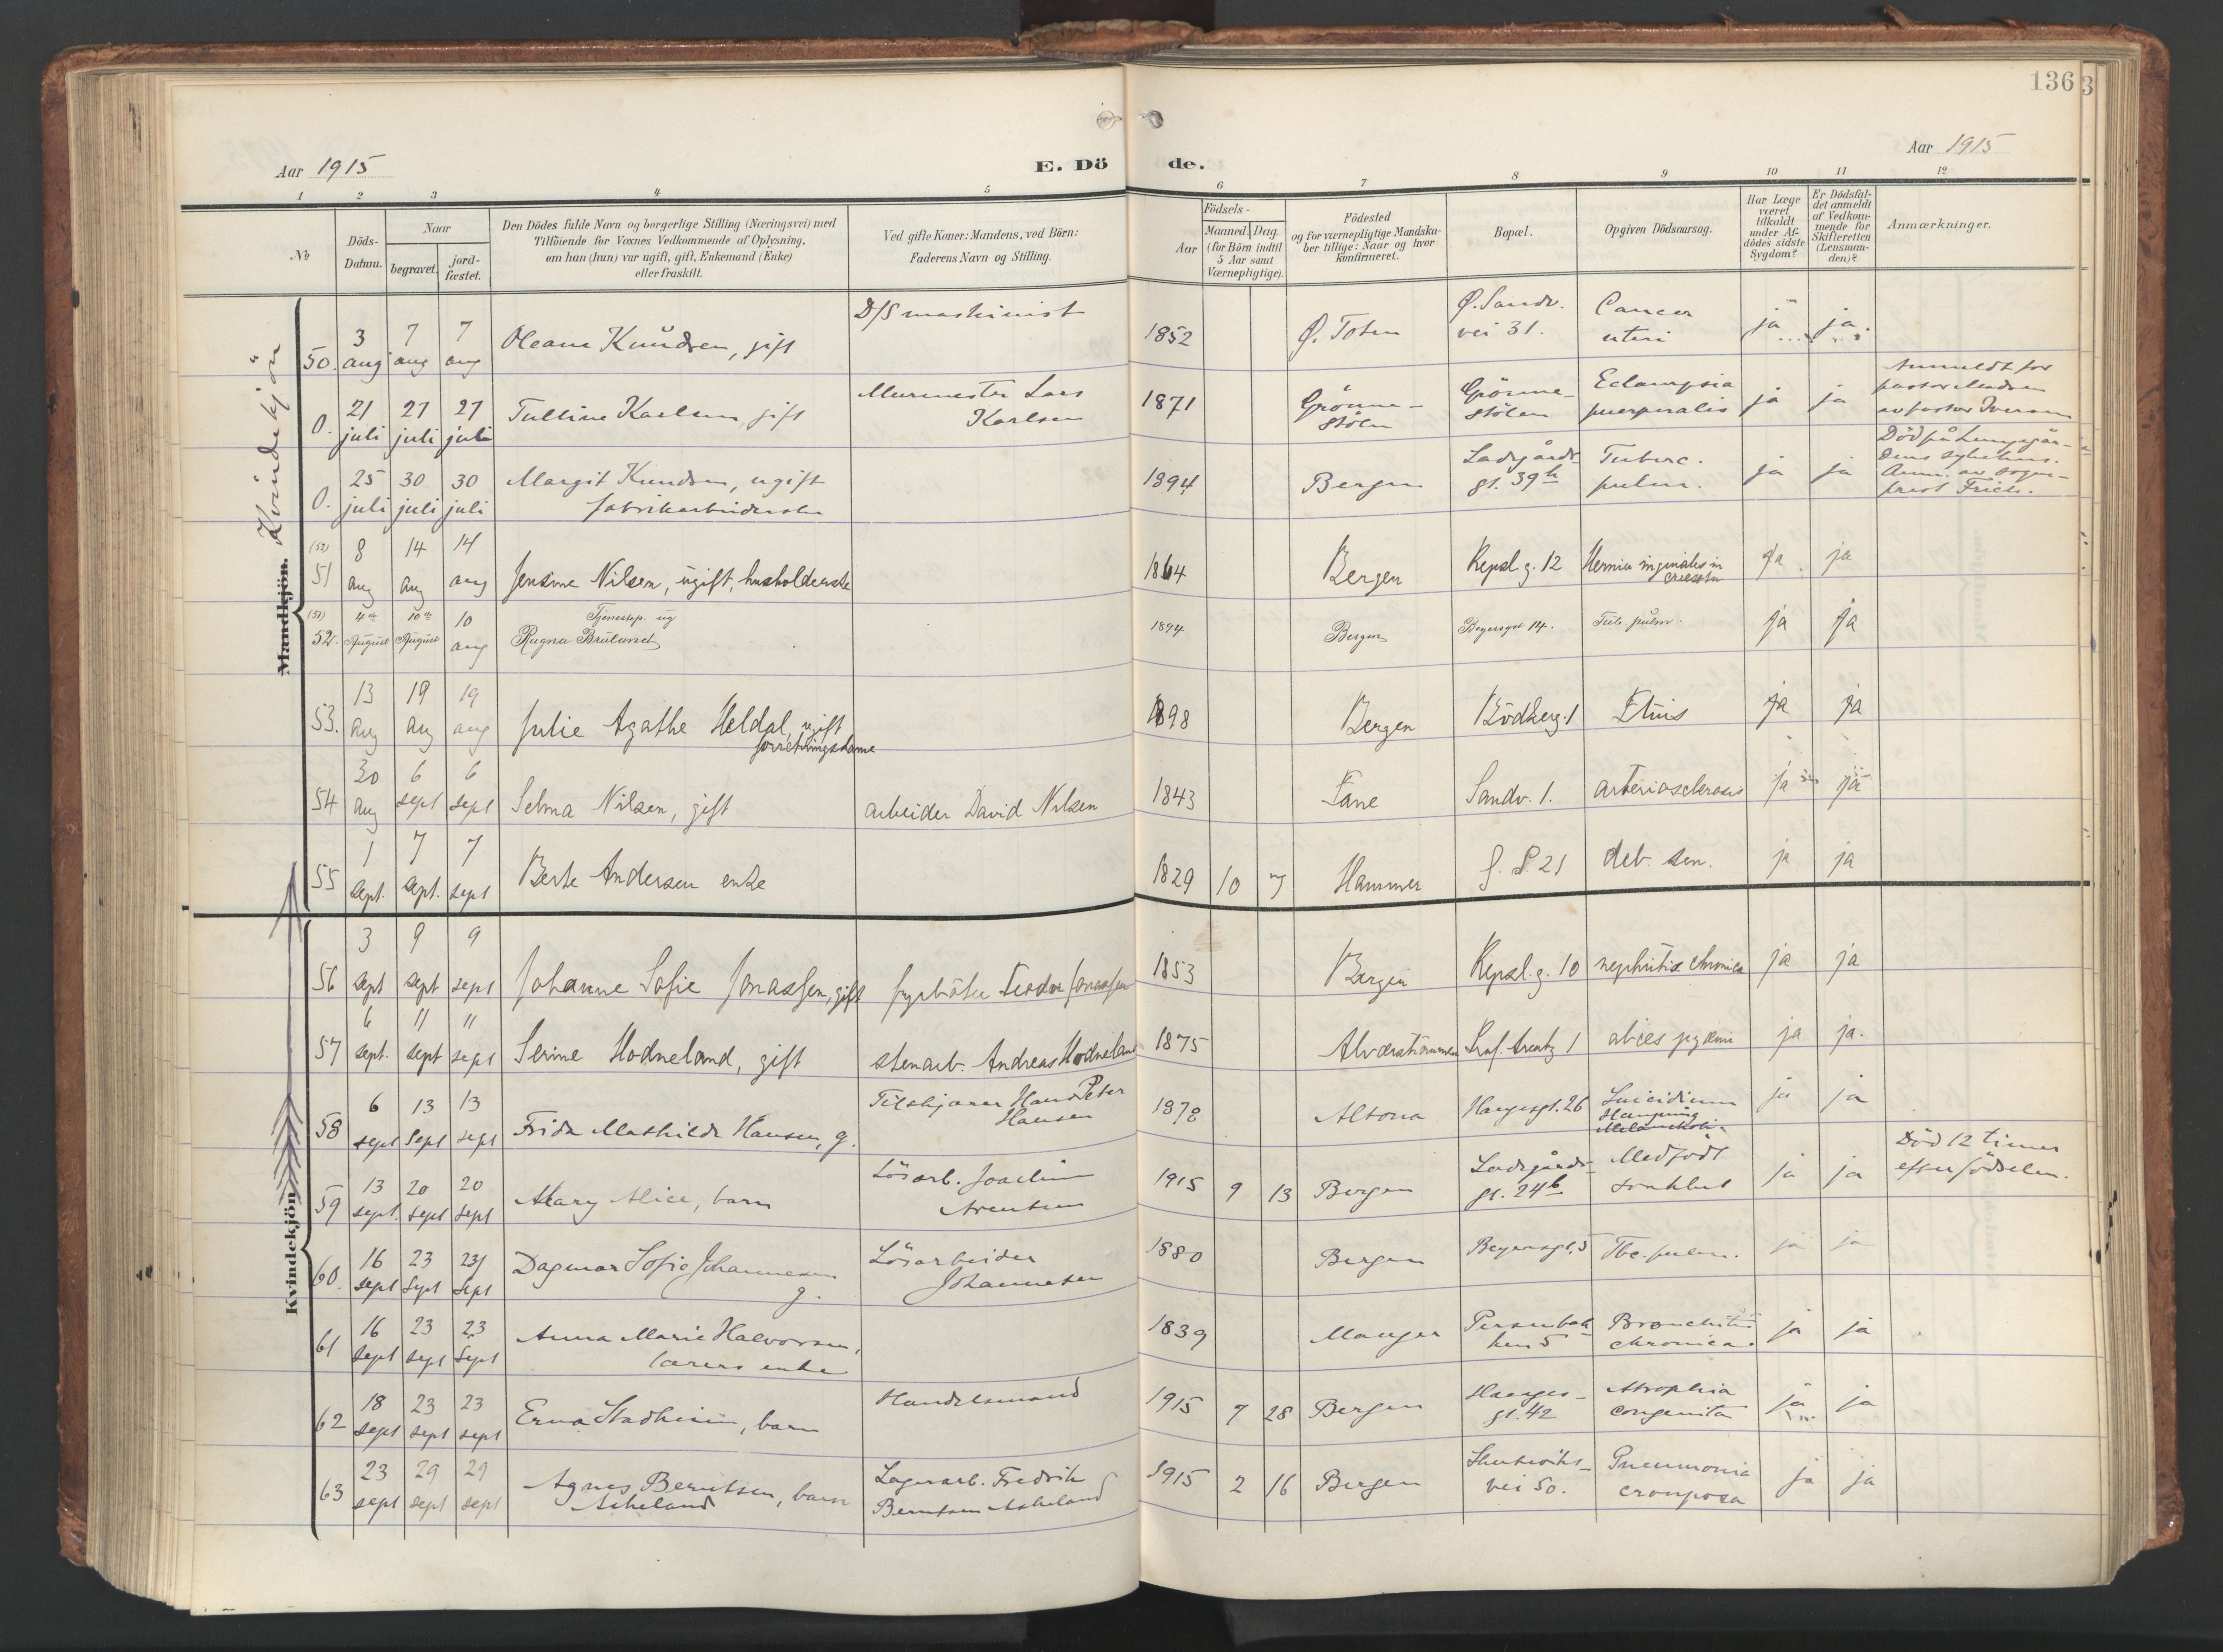 136
3
Aar 1915
E. Dö
de.
Aar 1915
1 2 3 4 5 6 7 8 9 10 11 12
№
Döds-
Datum.
Naar
begravet.
jord-
fæstet.
Den Dödes fulde Navn og borgerlige Stilling (Næringsvei) med
Tilföiende for Voxnes Vedkommende af Oplysning,
om han (hun) var ugift, gift, Enkemand (Enke)
eller fraskilt.
Ved gifte Koner: Mandens, ved Börn:
Faderens Navn og Stilling.
Födsels-
Aar
Maaned. Dag.
(for Börn indtil
5 Aar samt
Værnepligtige).
Födested
og for værnepligtige Mandska-
ber tillige: Naar og hvor
konfirmeret.
Bopæl.
Opgiven Dödsaarsag.
Har Læge
været
tilkaldt
under Af-
dödes sidste
Sygdom?
Er Dödsfal-
det anmeldt
af Vedkom-
mende for
Skifteretten
(Lensman-
den)?
Anmærkninger.
Kvindekjön
Mandkjön.
Kvindekjön.
50. 3 aug 7 aug 7 aug Oleane Knudsen, gift D/S maskinist 1852 Ø. Toten Ø. Sandv. vei 31. Cancer uteri ja ja.
0. 21 juli 27 juli 27 juli Tulline Karlsen gift Murmester Lars Karlsen 1871 Grönne- stölen Grönne- stölen Eclampsia puerperalis ja ja Anmeldt for pastor Madsen av pastor Iversen
0. 25 juli 30 juli 30 juli Margit Knudsen, ugift fabrikarbeiderske 1894 Bergen Ladegårds- gt. 39 b Tuberc. pulm. ja ja Död på Lungegår- dens sykehus. Anm. av sogne- prest Frich.
(52) 51 8 aug 14 aug 14 aug Jensine Nilsen, ugift, husholderske 1864 Bergen Repsl. g. 12 Hernia inginalis in ja ja
(51) 52. 4de August 10de August 10 aug Tjenestep. ug Ragna Bruland 1894 Bergen Beyersgt 14. Tub. pulm. ja ja
53. 13 aug 19 aug 19 aug Julie Agathe Heldal, ugift forretningsdame 1898 Bergen Bödkerg. 1 ja ja
54 30 aug 6 sept 6 sept Selma Nilsen, gift arbeider David Nilsen 1843 Fane Sandv. 1. arteriosclerosis ja ja
55 1 sept. 7 sept. 7 sept Berte Andersen enke 1829 10 7 Hammer S. P. 21 deb. sen. ja ja
56 3 sept 9 sept 9 sept Johanne Sofie Jonassen, gift fyrböter Teodor Jonassen 1853 Bergen Repsl. g. 10 nephritis chronica ja ja
57 6 sept. 11 sept 11 sept Serine Hodneland, gift stenarb. Andreas Hodneland 1875 Alværströmmen 1 ja ja.
58 6 sept 13 Sept 13 sept Frida Mathilde Hansen, g. Tilskjærer Hans Peter Hansen 1878 Altona Haugesgt. 26 Suicidium Hængning Melankoli ja ja
59 13 sept. 20 sept 20 sept Mary Alice, barn Lösarb. Joachim Arentsen 1915 9 13 Bergen Ladegårds- gt. 24 b Medfödt svakhet ja ja Död 12 timer efter födselen.
60. 16 sept 23 Sept 23 Sept Dagmar Sofie Johannesen g. Lösarbeider Johannesen 1880 Bergen Beyersgt. 5 Tbc. pulm. ja ja
61 16 sept 23 sept 23 Sept Anna Marie Halvorsen, lærers enke 1839 Manger Persenbak- ken 5 Bronchitis chronica. ja ja
62 18 sept 23 sept 23 sept Erna Stadheim, barn Handelsmand 1915 7 28 Bergen Hauges- gt. 42 Atrophia congenita ja ja
63 23 sept 29 sept 29 sept Agnes Berntsen, barn Askeland Lagerarb. Fredrik Berntsen Askeland 1915 2 16 Bergen Skuteviks- vei 50. Pneumonia crouposa ja ja